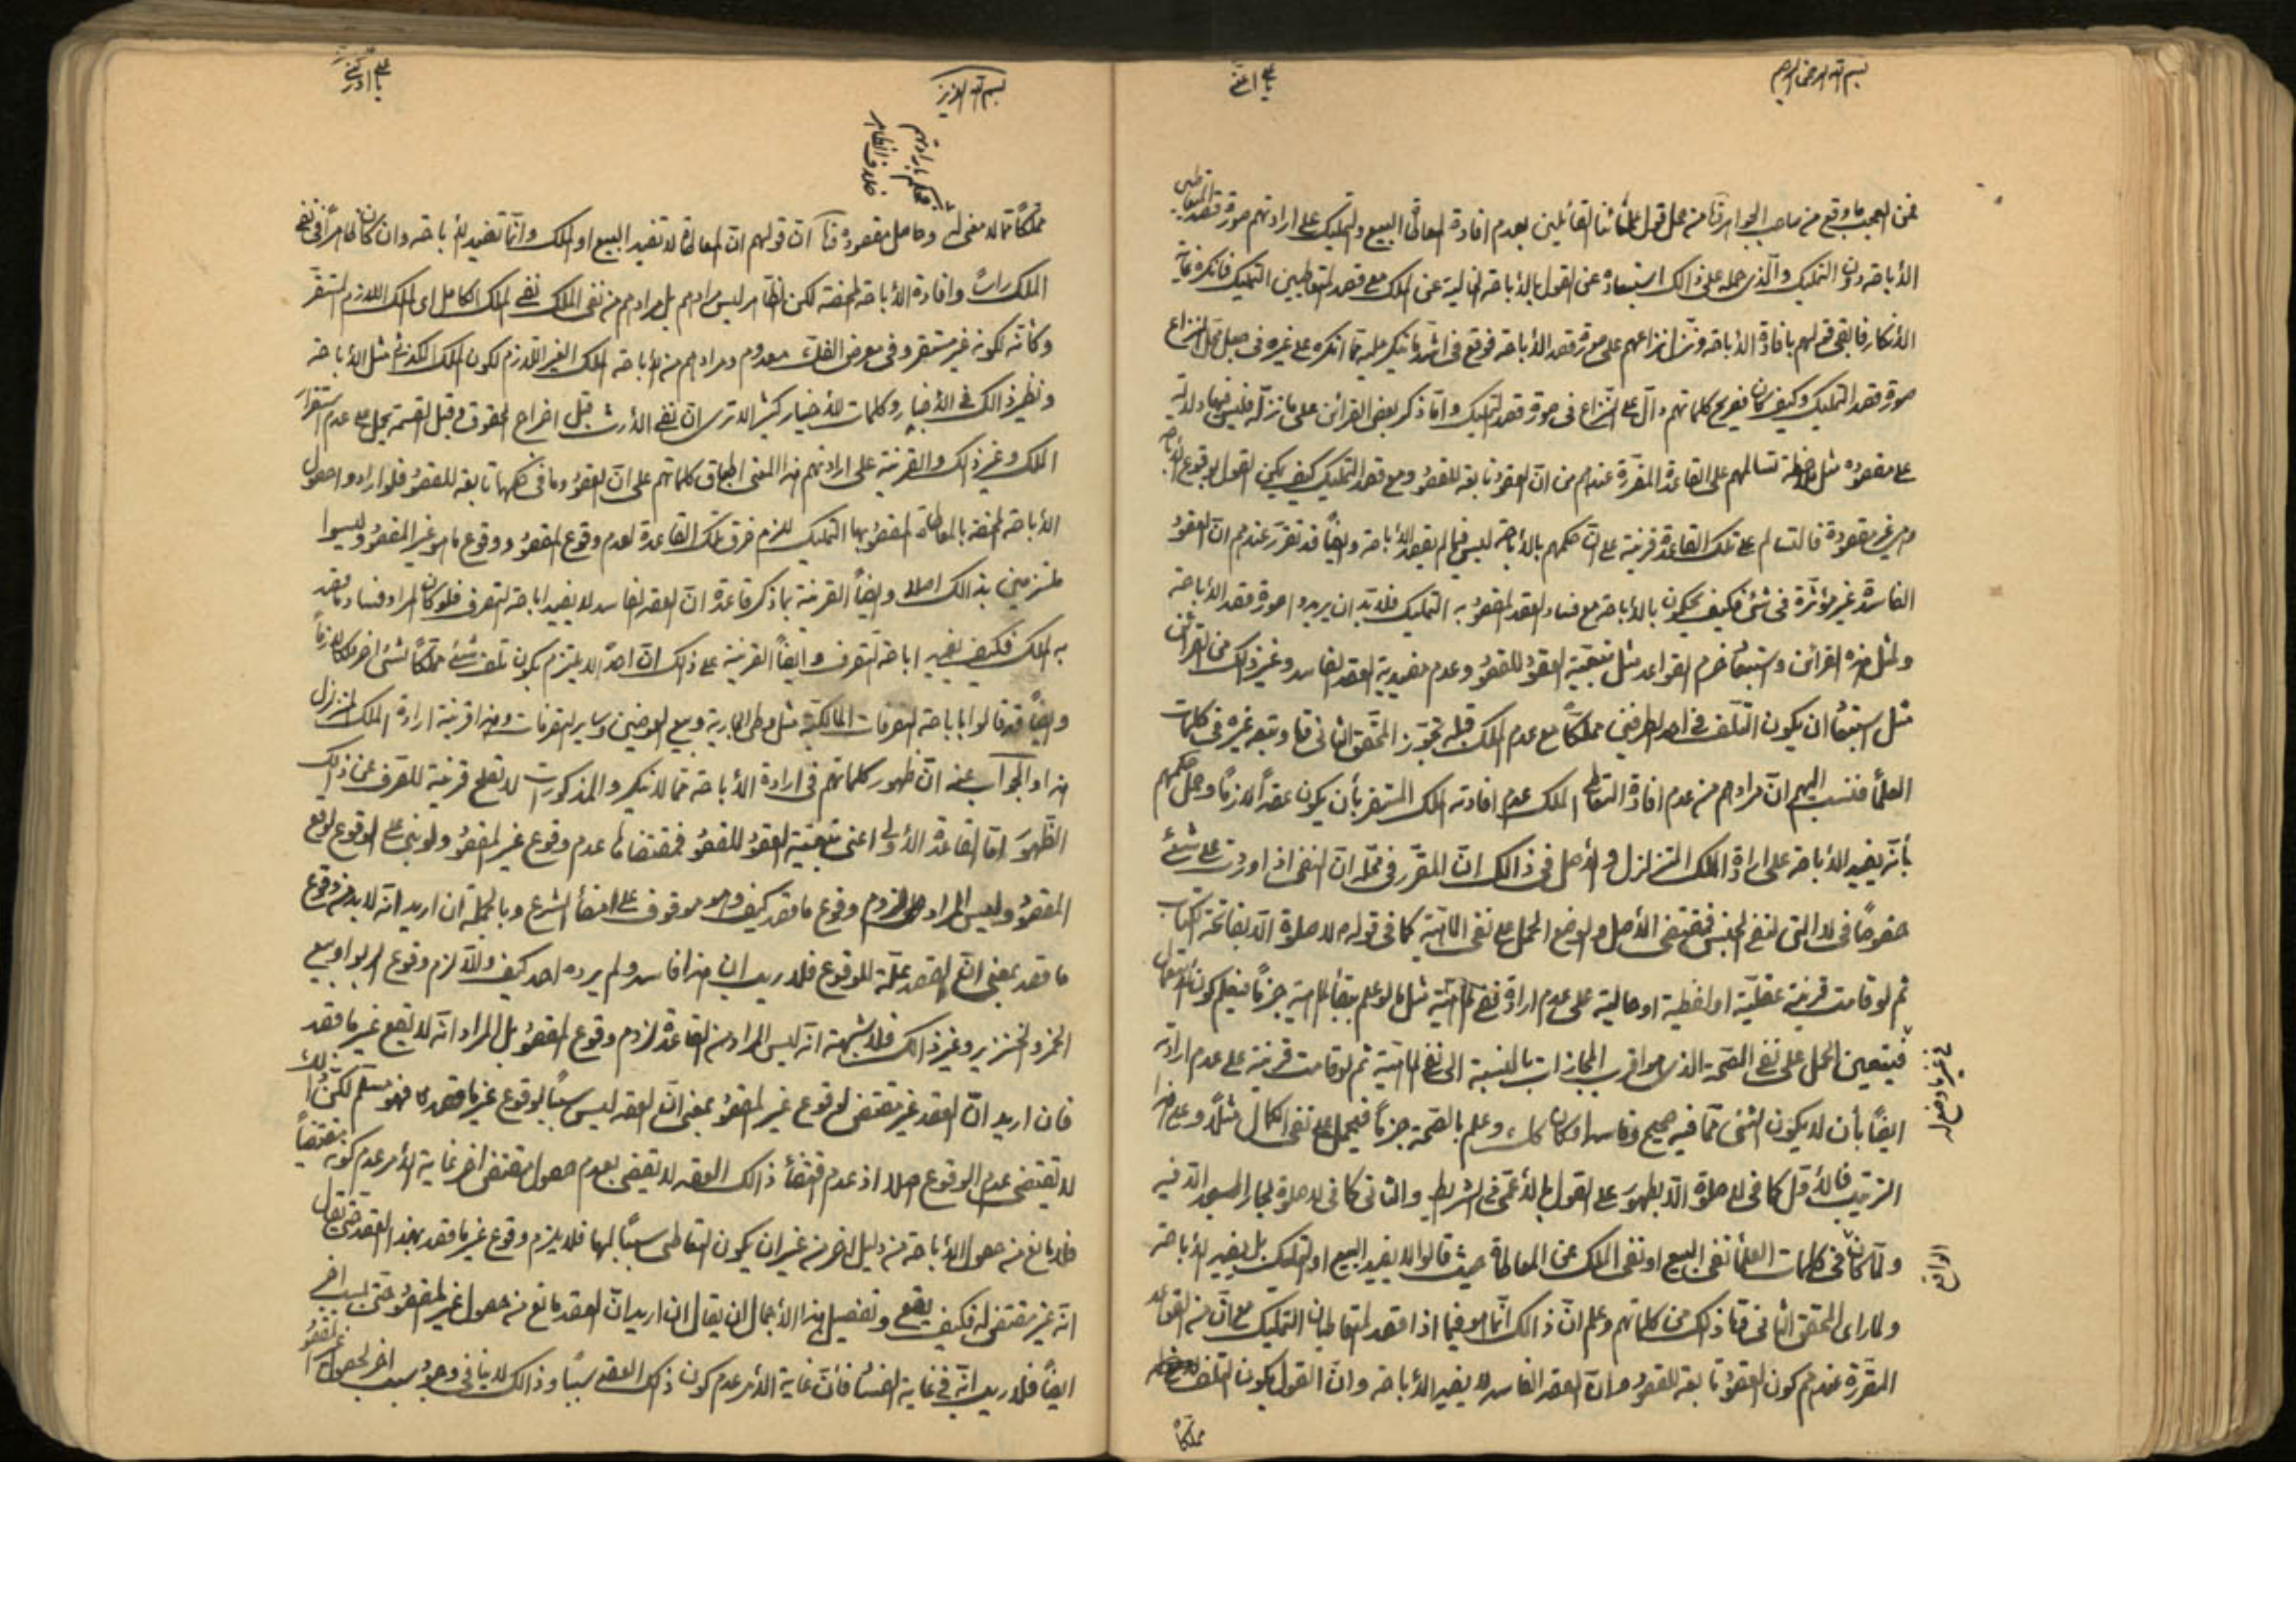 بسم الله الرحمن الرحيم
يا علي اغثني
فمن العجب ما وقع من صاحب الجواهر قدّه من حمل قول علمائنا القائلين بعدم افادة المعاطاة البيع والتمليك على ارادتهم صورة قصد المتعاطيين
الأباحة دون التمليك والّذى حمله على ذالك استبعاده عن القول بالأباحة الخالية عن الملك مع قصد المتعاطيين التمليك فانكره غاية
الأنكار فابقى قولهم بافادة الأباحة ونزّل نزاعهم على صورة قصد الأباحة فوقع فى اشدّ ما ينكر عليه ممّا انكره على غيره فى جعل محل النزاع
صورة قصد التمليك وكيف كان فصريح كلماتهم دالّ على النزاع فى صورة قصد التمليك وامّا ذكر بعض القرائن على ما نزّله فليس فيها دلالة
على مقصوده مثل ملاحظة تسالمهم على القاعدة المقرّرة عندهم من انّ العقود تابعة للقصود ومع قصد التمليك كيف يمكن القول بوقوع الأباحة
وهى غير مقصودة فالتسالم على تلك القاعدة قرينة على انّ حكمهم بالأباحة ليس فيما لم يقصد الأباحة وايضًا قد تقرّر عندهم انّ العقود
الفاسدة غير مؤثّرة فى شئ فكيف يحكمون بالأباحة مع فساد العقد المقصود به التمليك فلابّد ان يريدوا صورة قصد الأباحة
ولمثل هذه القرائن واستبعاد خرم القواعد مثل تبعيّة العقود للقصود وعدم مفيدية العقد الفاسد وغير ذلك من القرائن
مثل استبعاد ان يكون التّلف فى احد الطرفين مملّكًا مع عدم الملك قبله تجوّز المحقّق الثانى قدّه وتبعه غيره فى كلمات
العلمأ فنسب اليهم انّ مرادهم من عدم افادة التعاطى الملك عدم افادته الملك المستقر بأن يكون عقدًا لازمًا وحمل حكمهم
بأنّه يفيد الأباحة على ارادة الملك المتزلزل والأصل فى ذالك انّ المقرّر فى محّله انّ النفى اذا اوردت على شئ
خصوصًا فى لا التى لنفى الجنس فمقتضى الأصل والوضع الحمل على نفى الماهيّة كما فى قوله لا صلوة الّا بفاتحة الكتاب
ثم لو قامت قرينة عقليّة او لفظية او حالية على عدم ارادة نفى الماهيّة مثل ما لو علم ببقاء الماهية جزمًا فيعلم كون الاستعمال
فى غير ما وضع له
فيتعين الحمل على نفى الصّحة الذى هو اقرب المجازات بالنسبة الى نفى الماهيّة ثم لو قامت قرينة على عدم ارادته
ايضًا بأن لا يكون الشئ ممّا فيه صحيح وفاسد او كان كذلك وعلم بالصّحة جزمًا فيحمل على نفى الكمال مثلًا وعلى هذا
الترتيب فالأوّل كما فى لا صلوة الّا بطهور على القول بالأعمّ فى الشرايط والثانى كما فى لا صلوة لجار المسجد الّا فيه
الواقع
ولمّا كان فى كلمات العلمأ نفى البيع او نفى الملك عن المعاطاة حيث قالوا لا يفيد البيع او التمليك بل يفيد الأباحة
ولما راى المحقق الثانى قدّه ذلك من كلماتهم وعلم انّ ذالك انّما هو فيما اذا قصد المتعاطيان التمليك مع انّ من القواعد
المقرّرة عندهم كون العقود تابعة للقصود وانّ العقد الفاسد لا يفيد الأباحة وانّ القول بكون التلف
مملّكًا
بسم الله العزيز
يا علي ادركني
فحكم بارادتهم
خلاف الظاهر
مملّكًا ممّا لا معنى له وحاصل مقصوده قدّه انّ قولهم انّ المعاطاة لا تفيد البيع او الملك وانّما تفيد الأباحة وان كان ظاهرًا فى نفى
الملك رأسًا وافادة الأباحة المحضة لكن الظّاهر ليس مرادهم بل مرادهم من نفى الملك نفى الملك الكامل اى الملك اللازم المستقرّ
وكأنّه لكونه غير مستقر وفى معرض الفكّ معدوم ومرادهم من الأباحة الملك الغير اللّازم لكون الملك الكذائى مثل الأباحة
ونظير ذالك فى الأخبار وكلمات الأخيار كثير الا ترى انّ نفى الأرث قبل اخراج الحقوق وقبل القسمة يحمل على عدم استقرار
الملك وغير ذالك والقرينة على ارادتهم هذا المعنى اطباق كلماتهم على انّ العقود وما فى حكمها تابعة للقصود فلو ارادوا حصول
الأباحة المحضة بالمعاطاة المقصود بها التمليك للزم خرق تلك القاعدة لعدم وقوع المقصود ووقوع ما هو غير المقصود وليسوا
ملتزمين بذالك اصلا وايضًا القرينة بما ذكر قاعدة انّ العقد الفاسد لا يفيد اباحة التصرف فلو كان المراد فساد ما قصد
به الملك فكيف يفيد اباحة التصرف وايضًا القرينة على ذلك انّ احدًا لا يلتزم بكون تلف شئ مملّكًا لشئ اخر
وايضًا قد قالوا باباحة التصرفات المالكيّة مثل وطى الجارية وبيع العوضين وساير التصرفات وهذا قرينة ارادة الملك المتزلزل
هذا والجواب عنه انّ ظهور كلماتهم فى ارادة الأباحة ممّا لا ينكر والمذكورات لا تصلح قرينة للصّرف عن ذالك
الظّهور امّا القاعدة الأولى اعنى تبعيّة العقود للقصود فمقتضاها عدم وقوع غير المقصود ولو بنى على الوقوع لوقع
المقصود وليس المراد لزوم وقوع ما قصد كيف وهو موقوف على امضأ الشرع وبالجملة ان اريد انّه لا بد من وقوع
ما قصد بمعنى انّ القصد علّة للوقوع فلا ريب ان هذا فاسد ولم يرده احد كيف والّا لزم وقوع الربوا وبيع
الخمر والخنزير وغير ذالك فلا شبهة انّه ليس المراد من القاعدة لزوم وقوع المقصود بل المراد انّه لا يقع غير ما قصد
فان اريد انّ العقد غير مقتضى لوقوع غير المقصود بمعنى انّ العقد ليس سببًا لوقوع غير ما قصد فهو مسلّم لكنّ ذلك
لا يقتضى عدم الوقوع اصلا اذ عدم اقتضأ ذالك العقد لا يقضى بعدم حصول مقتضى اخر غاية الأمر عدم كونه مقتضيًا
فلا مانع من حصول الأباحة من دليل اخر من غير ان يكون التعاطى سببًا لها فلا يلزم وقوع غير ما قصد بهذا العقد حتى يقال
انّه غير مقتضى له فكيف يقع وتفصيل هذا الأجمال ان يقال ان اريد انّ العقد مانع من حصول غير المقصود حتى بسبب اخر
ايضًا فلا ريب انّه فى غاية الفساد فأنّ غاية الأمر عدم كون ذلك العقد سببًا وذالك لا ينافى وجود سبب اخر لحصول غير المقصود